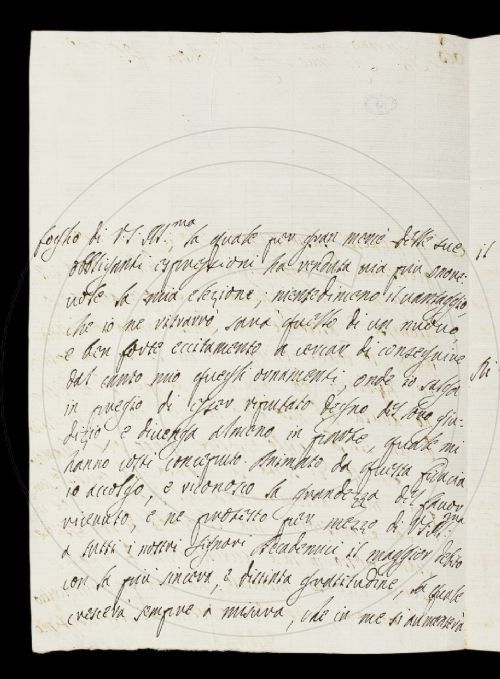 foglio di V.S. Ill.ma, la quale per gran mercè delle sue
obbliganti espressioni ha renduta via più onore-
vole la mia elezione, nientedimeno il vantaggio,
che io ne ritrarrò, sarà quello di un nuovo,
e ben forte eccitamento a cercar di conseguire
dal canto mio quegli ornamenti, onde io salga
in pregio di esser riputato degno del loro giu-
dizio, e divenga almeno in parte, quale mi
hanno costì concepito. Animato da questa fiducia
io accolgo, e riconosco la grandezza del favor
ricevuto, e ne protesto per mezzo di V.S. Ill.ma
a tutti i nostri Signori Accademici il maggior debito
con la più sincera, e distinta gratitudine, la quale
crescerà sempre a misura, che in me si aumenterà
il